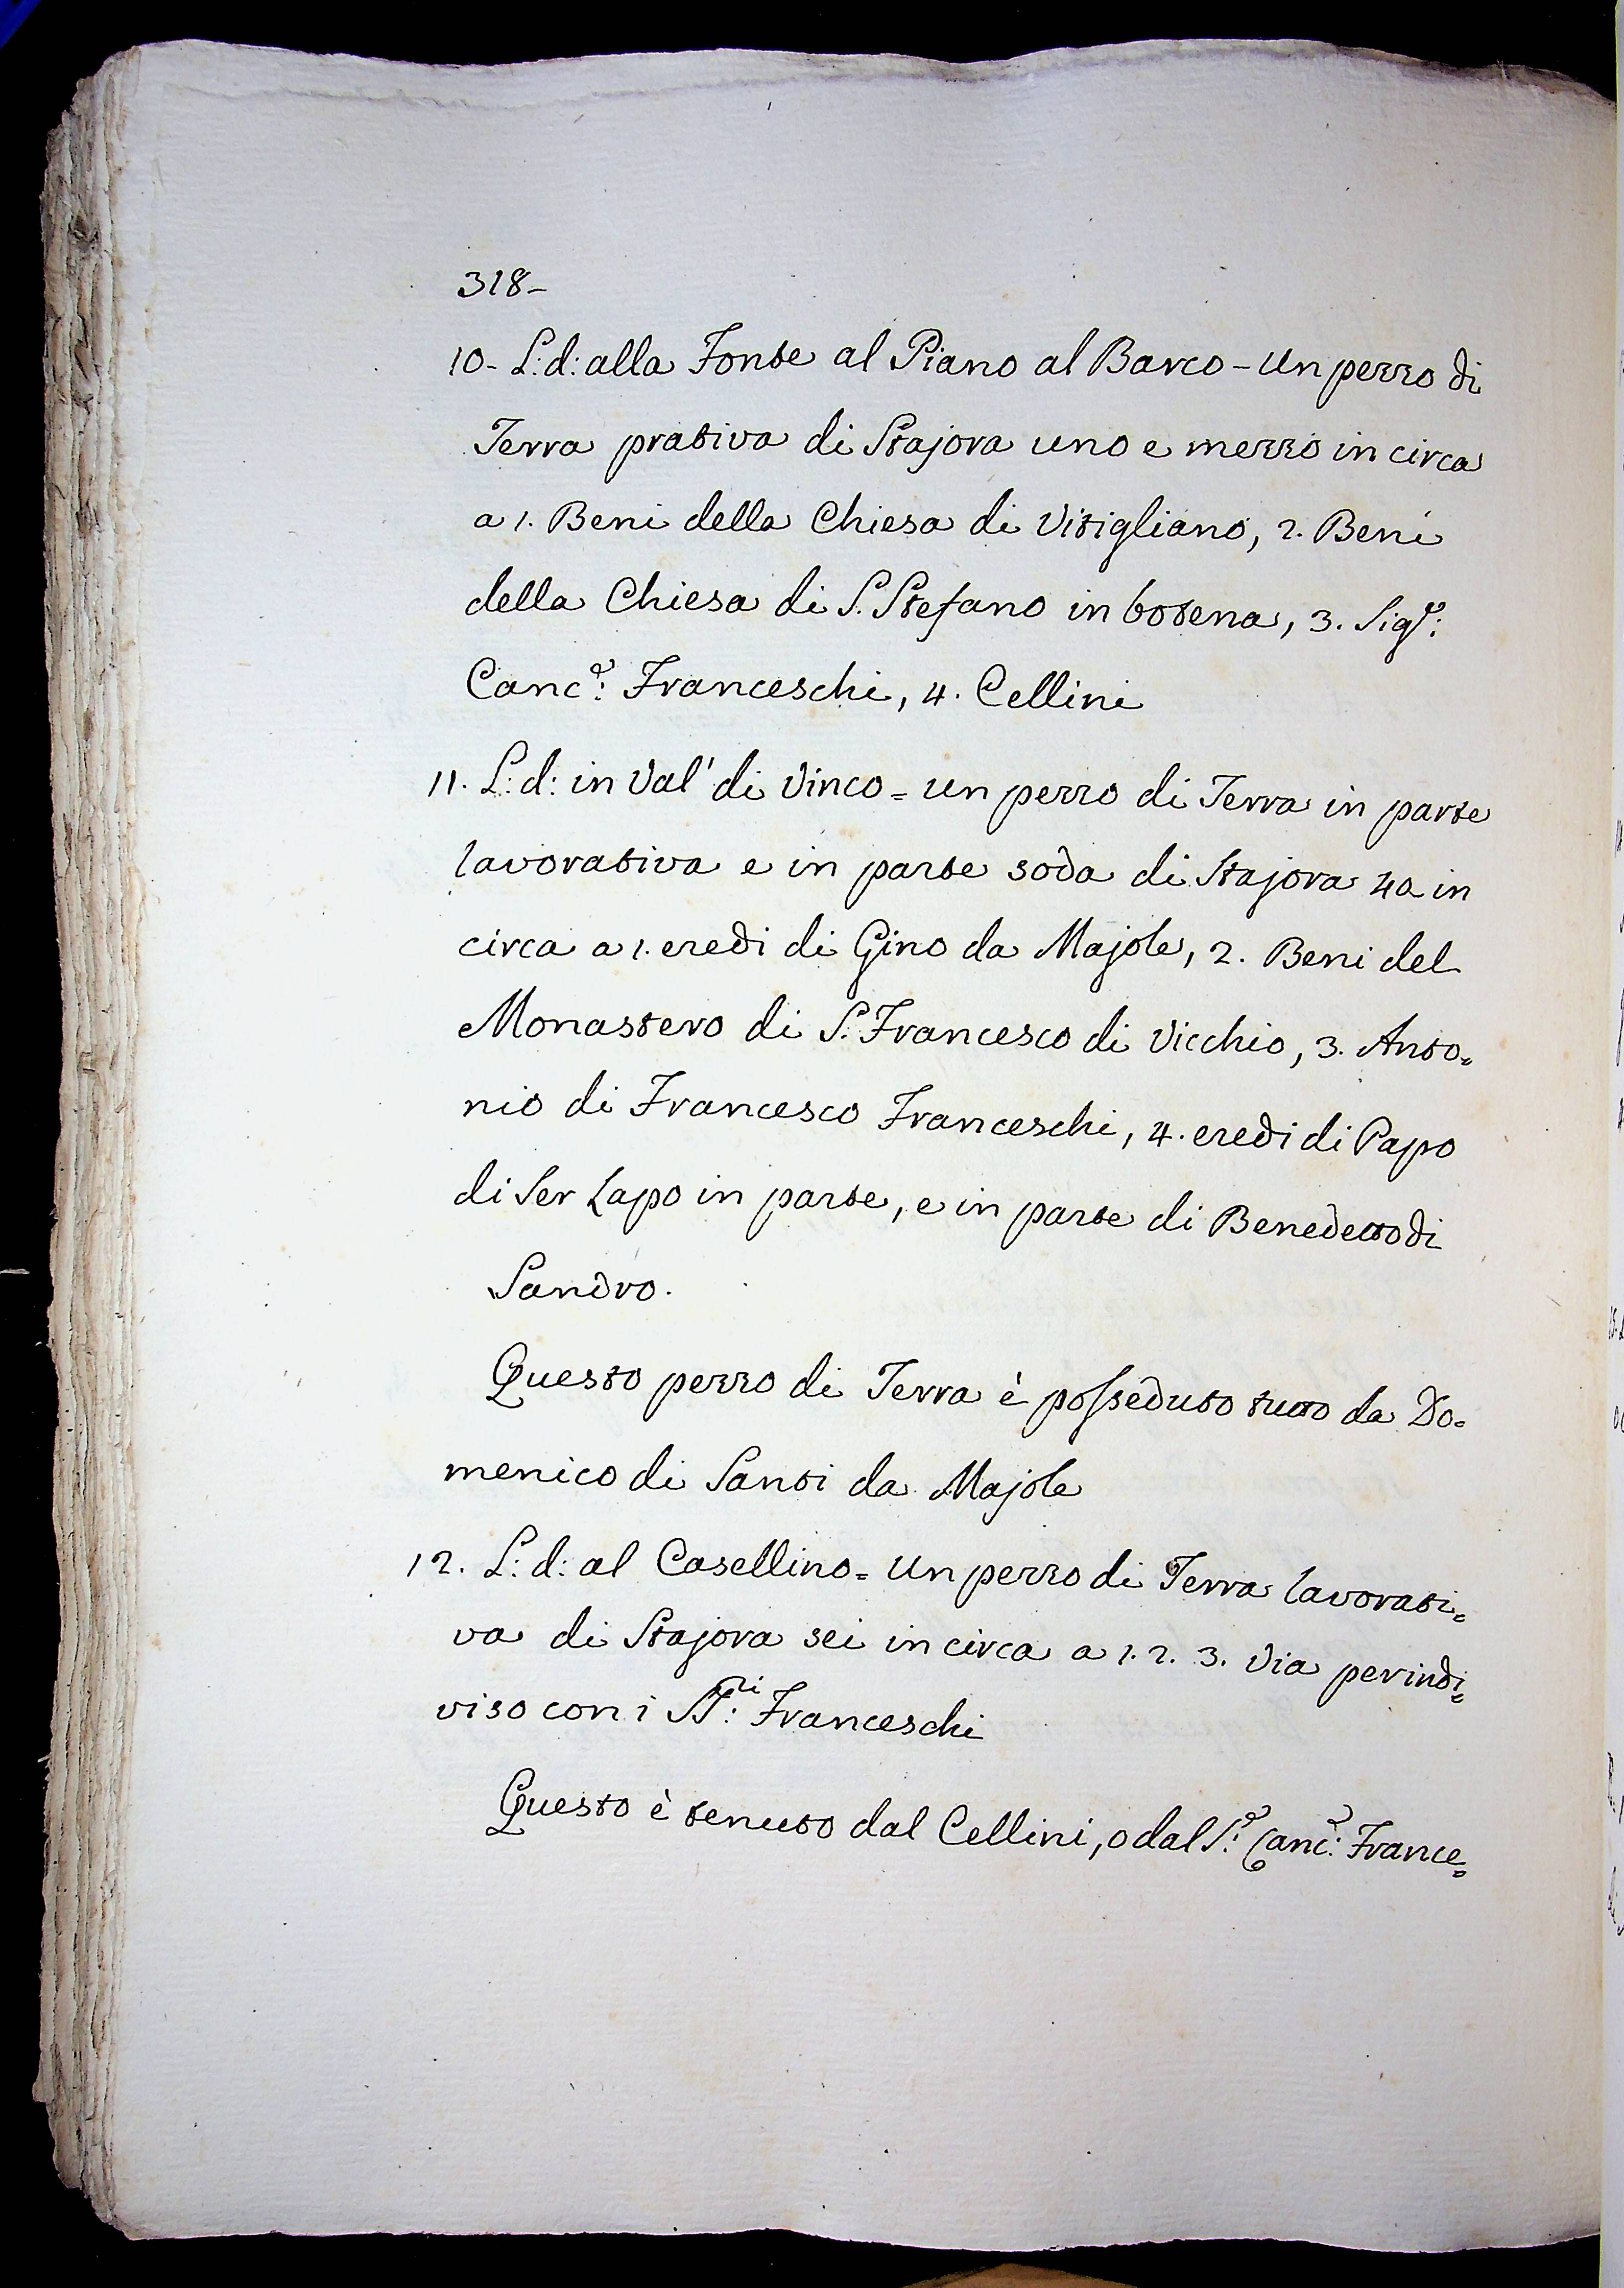 318-
10- L: d: alla Fonte al Piano al Barco - un pezzo di
Terra prativa di Stajora uno e mezzo in circa
a 1. Beni della Chiesa di Vitigliano, 2. Beni
della Chiesa di S. Stefano in botena, 3. Sig.r:
Canc.e: Franceschi, 4. Cellini
11. L: d: in Val' di Vinco = un pezzo di Terra in parte
lavorativa e in parte soda di Stajora 4a in
circa a 1. eredi di Gino da Majole, 2. Beni del
Monastero di S. Francesco di Vicchio, 3. Anto=
nio di Francesco Franceschi, 4. eredi di Papo
di Ser Lapo in parte, e in parte di Benedetto di
Sandro.
Questo pezzo di Terra è posseduto tutto da Do=
menico di Santi da Majole
12. L: d: al Casellino = un pezzo di Terra lavorati=
va di Stajora sei in circa a 1. 2. 3. Via perindi=
viso con i SS.ri: Franceschi
Questo è tenuto dal Cellini, o dal S.r: Canc.e: France=